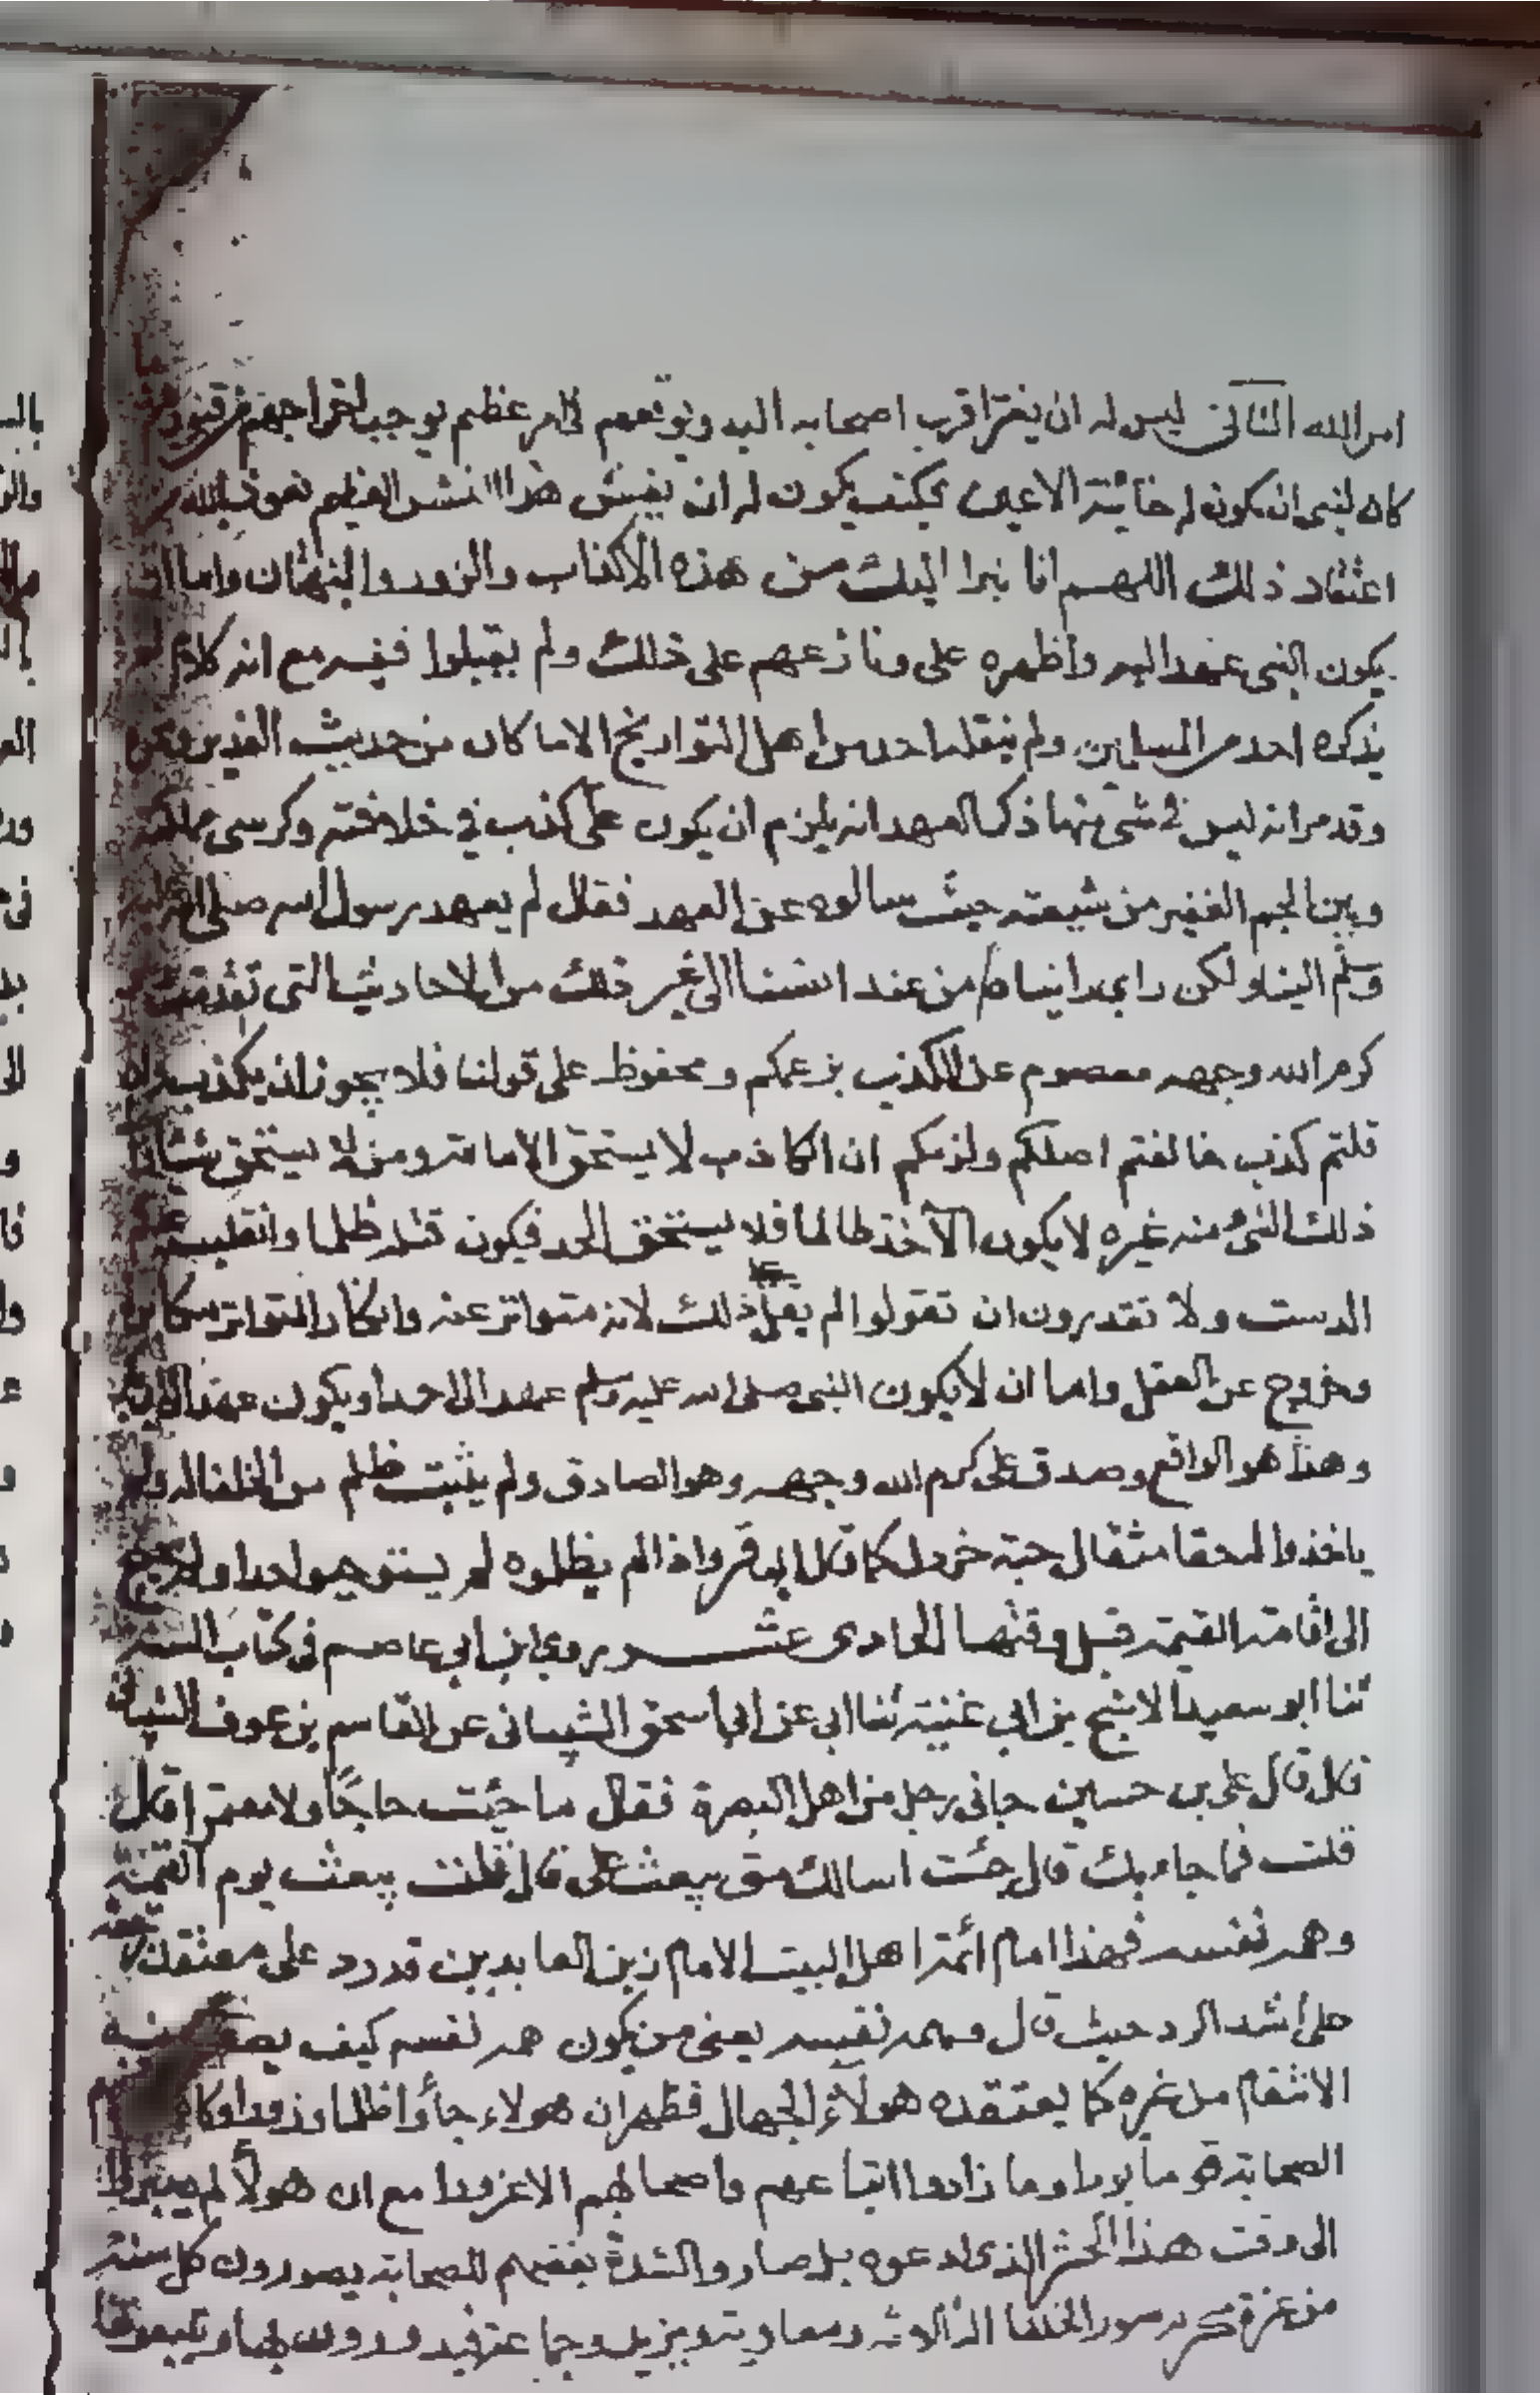 امر الله الثاني ليس له ان يغرّ اقرب اصحابه اليه ويوقعهم في امر عظيم يوجب اخراجهم من قبورهم
كان لنبي ان يكون له خائنة الاعين فكيف يكون له ان يغش هذا الغش العظيم نعوذ بالله من
اعتقاد ذلك اللهم انا نبرا اليك من هذه الاكذاب والزور والبهتان واما ان
يكون النبي عهد اليه واظهره علي ونازعهم على ذلك ولم يقبلوا فيه مع انه كلام لم
يذكره احد من المسلمين ولم ينقله احد من اهل التواريخ الا ما كان من حديث الغدير
وقد مر انه ليس في شي منها ذكر العهد انه يلزم ان يكون علي كذب في خلافته وكرسي ملكه
وبين الجم الغفير من شيعته حيث سالوه عن العهد فقال لم يعهد رسول الله صلى الله عليه
وسلم الينا ولكن راي رايناه من عند انفسنا الى غير ذلك من الاحاديث التي تقدمت
كرم الله وجهه معصوم عن الكذب بزعمكم ومحفوظ على قولنا فلا يجوز ان يكذب
قلتم كذب خالفتم اصلكم ولزمكم ان الكاذب لا يستحق الامامة ومن لا يستحق شيئا
ذلك الشئ منه غيره لا يكون الآخذ ظالما فلا يستحق الحد فيكون قتله ظلما وانقلب عليكم
الدست ولا تقدرون ان تقولوا لم يقل ذلك لانه متواتر عنه وانكار المتواتر مكابرة
وخروج عن العقل واما ان لا يكون النبي صلى الله عليه وسلم عهد الى احد او يكون عهد
وهذا هو الواقع وصدق علي كرم الله وجهه وهو الصادق ولم يثبت ظلم من الخلفا له ولم
ياخذوا له حقا مثقال حبة خردل كما قال الباقر واذا لم يظلموه لم يستوجبوا حدا ولا
الى اقامة القيمة قبل وقتها الحادي عشر روي ابن ابي عاصم في كتاب السنة
ثنا ابو سعيد الاشج بن ابي غنية ثنا ابي عن ابي اسحق الشيباني عن القاسم بن عوف الشيباني
قال قال علي بن حسين جاني رجل من اهل البصرة فقال ما جئت حاجًا ولا معتمرا قال
قلت فما جاء بك قال جئت اسالك متى يبعث علي قال قلت يبعث يوم القيمة
وهمه نفسه فهذا امام ائمة اهل البيت الامام زين العابدين قد رد على معتقد رجعة
علي أشد الرد حيث قال وهمه نفسه يعني من يكون همه نفسه كيف يصح منه
الانتقام من غيره كما يعتقده هولآء الجهال فظهر ان هولاء جاؤا ظلما وزورا
الصحابة قوما بورا وما زادوا اتباعهم واصحابهم الا غرورا مع ان هولأ لم يصبروا
الى وقت هذا الحشر الذي ادعوه بل صاروا لشدة بغضهم للصحابة يصورون كل سنة
من غرة محرم صور الخلفا الثلاثة ومعاوية ويزيد وجماعة